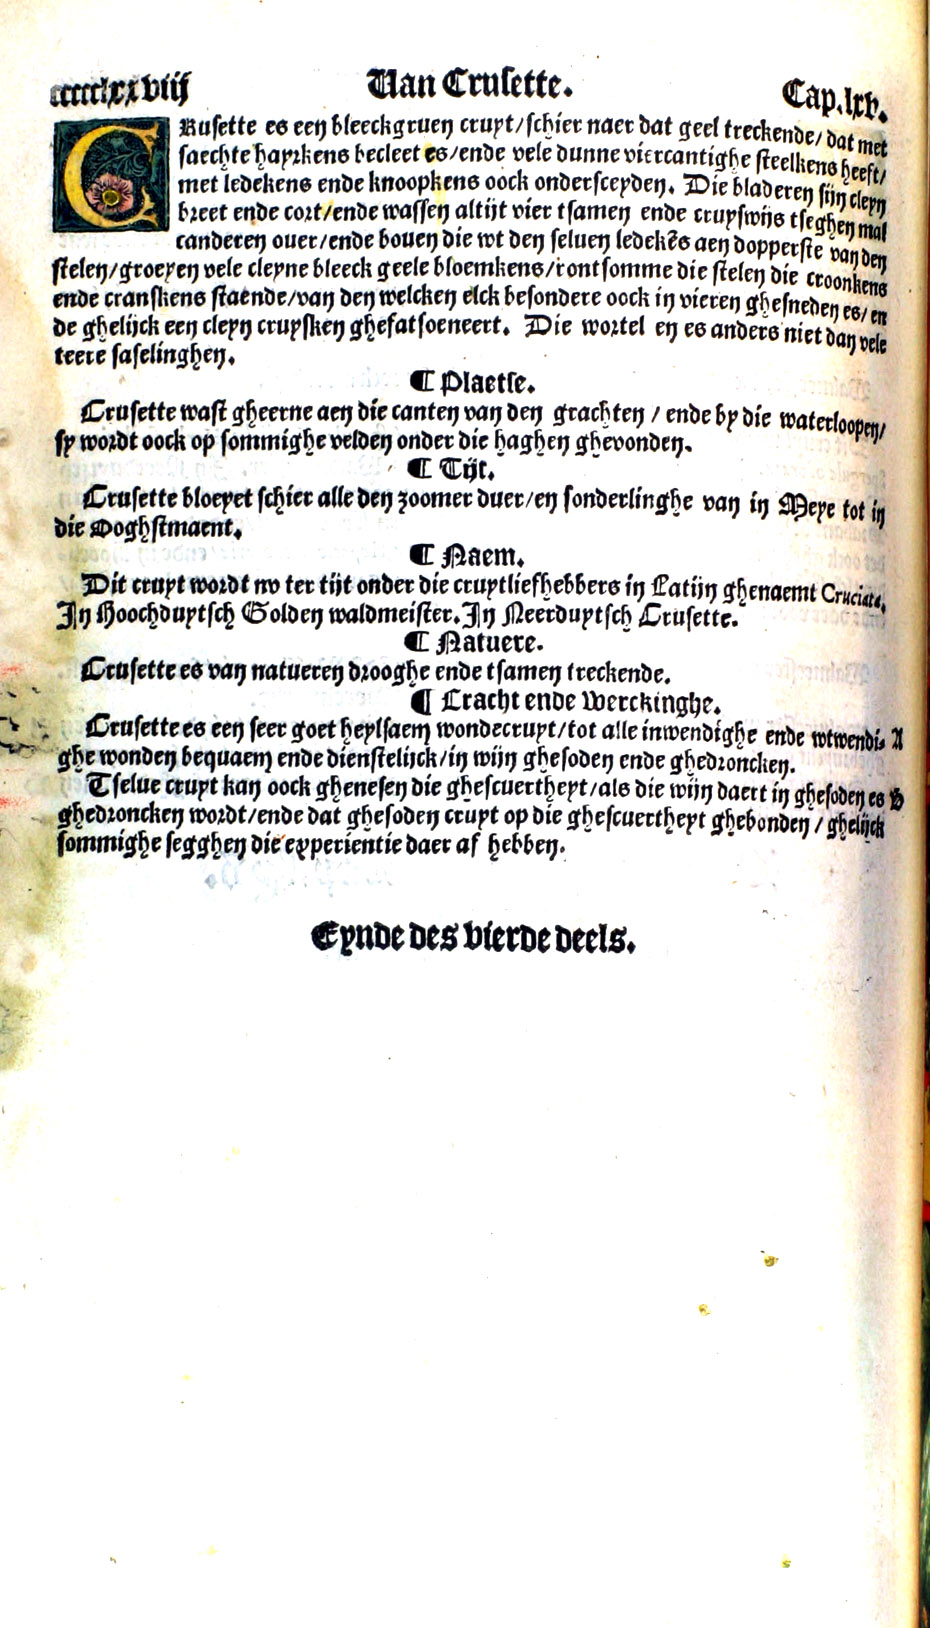 cccclxxviij Van Crusette. Cap.lxv.
CRusette es een bleeckgruen cruyt/schier naer dat geel treckende/dat met
saechte hayrkens becleet es/ende vele dunne viercantighe steelkens heeft/
met ledekens ende knoopkens oock ondersceyden. Die bladeren sijn cleyn
breet ende cort/ende wassen altijt vier tsamen ende cruyswijs tseghen mal
canderen ouer/ende bouen die wt den seluen ledekẽs aen dopperste van den
stelen/groeyen vele cleyne bleeck geele bloemkens/rontsomme die stelen die croonkens
ende cranskens staende/van den welcken elck besondere oock in vieren ghesneden es/en
de ghelijck een cleyn cruysken ghefatsoeneert. Die wortel en es anders niet dan vele
teere faselinghen.
¶ Plaetse.
Crusette wast gheerne aen die canten van den grachten / ende by die waterloopen/
sy wordt oock op sommighe velden onder die haghen ghevonden.
¶ Tijt.
Crusette bloeyet schier alle den zoomer duer/en sonderlinghe van in Meye tot in
die Ooghstmaent.
¶ Naem.
Dit cruyt wordt nv ter tijt onder die cruytliefhebbers in Latijn ghenaemt Cruciata.
In Hoochduytsch Golden waldmeister. In Neerduytsch Crusette.
¶ Natuere.
Crusette es van natueren drooghe ende tsamen treckende.
¶ Cracht ende Werckinghe.
Crusette es een seer goet heylsaem wondecruyt/tot alle inwendighe ende wtwendi- A
ghe wonden bequaem ende dienstelijck/in wijn ghesoden ende ghedroncken.
Tselue cruyt kan oock ghenesen die ghescuertheyt/als die wijn daert in ghesoden es B
ghedroncken wordt/ende dat ghesoden cruyt op die ghescuertheyt ghebonden / ghelijck
sommighe segghen die experientie daer af hebben.
Eynde des vierde deels.